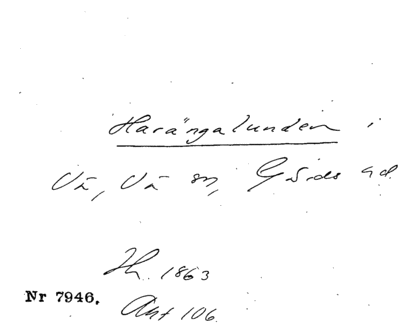 Harängalunden i
Vä, Vä sn, Gärds hd.
Lh. 1863
Nr 7946.
Akt 106.